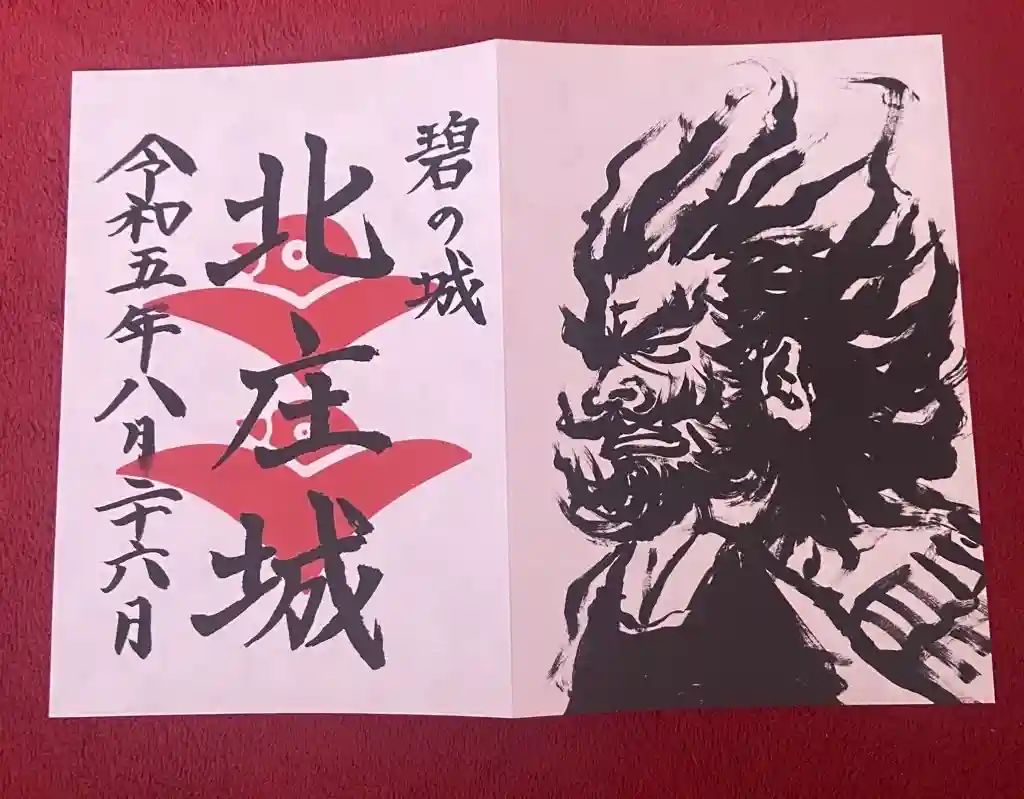 碧の城
北庄城
令和五年八月二十六日